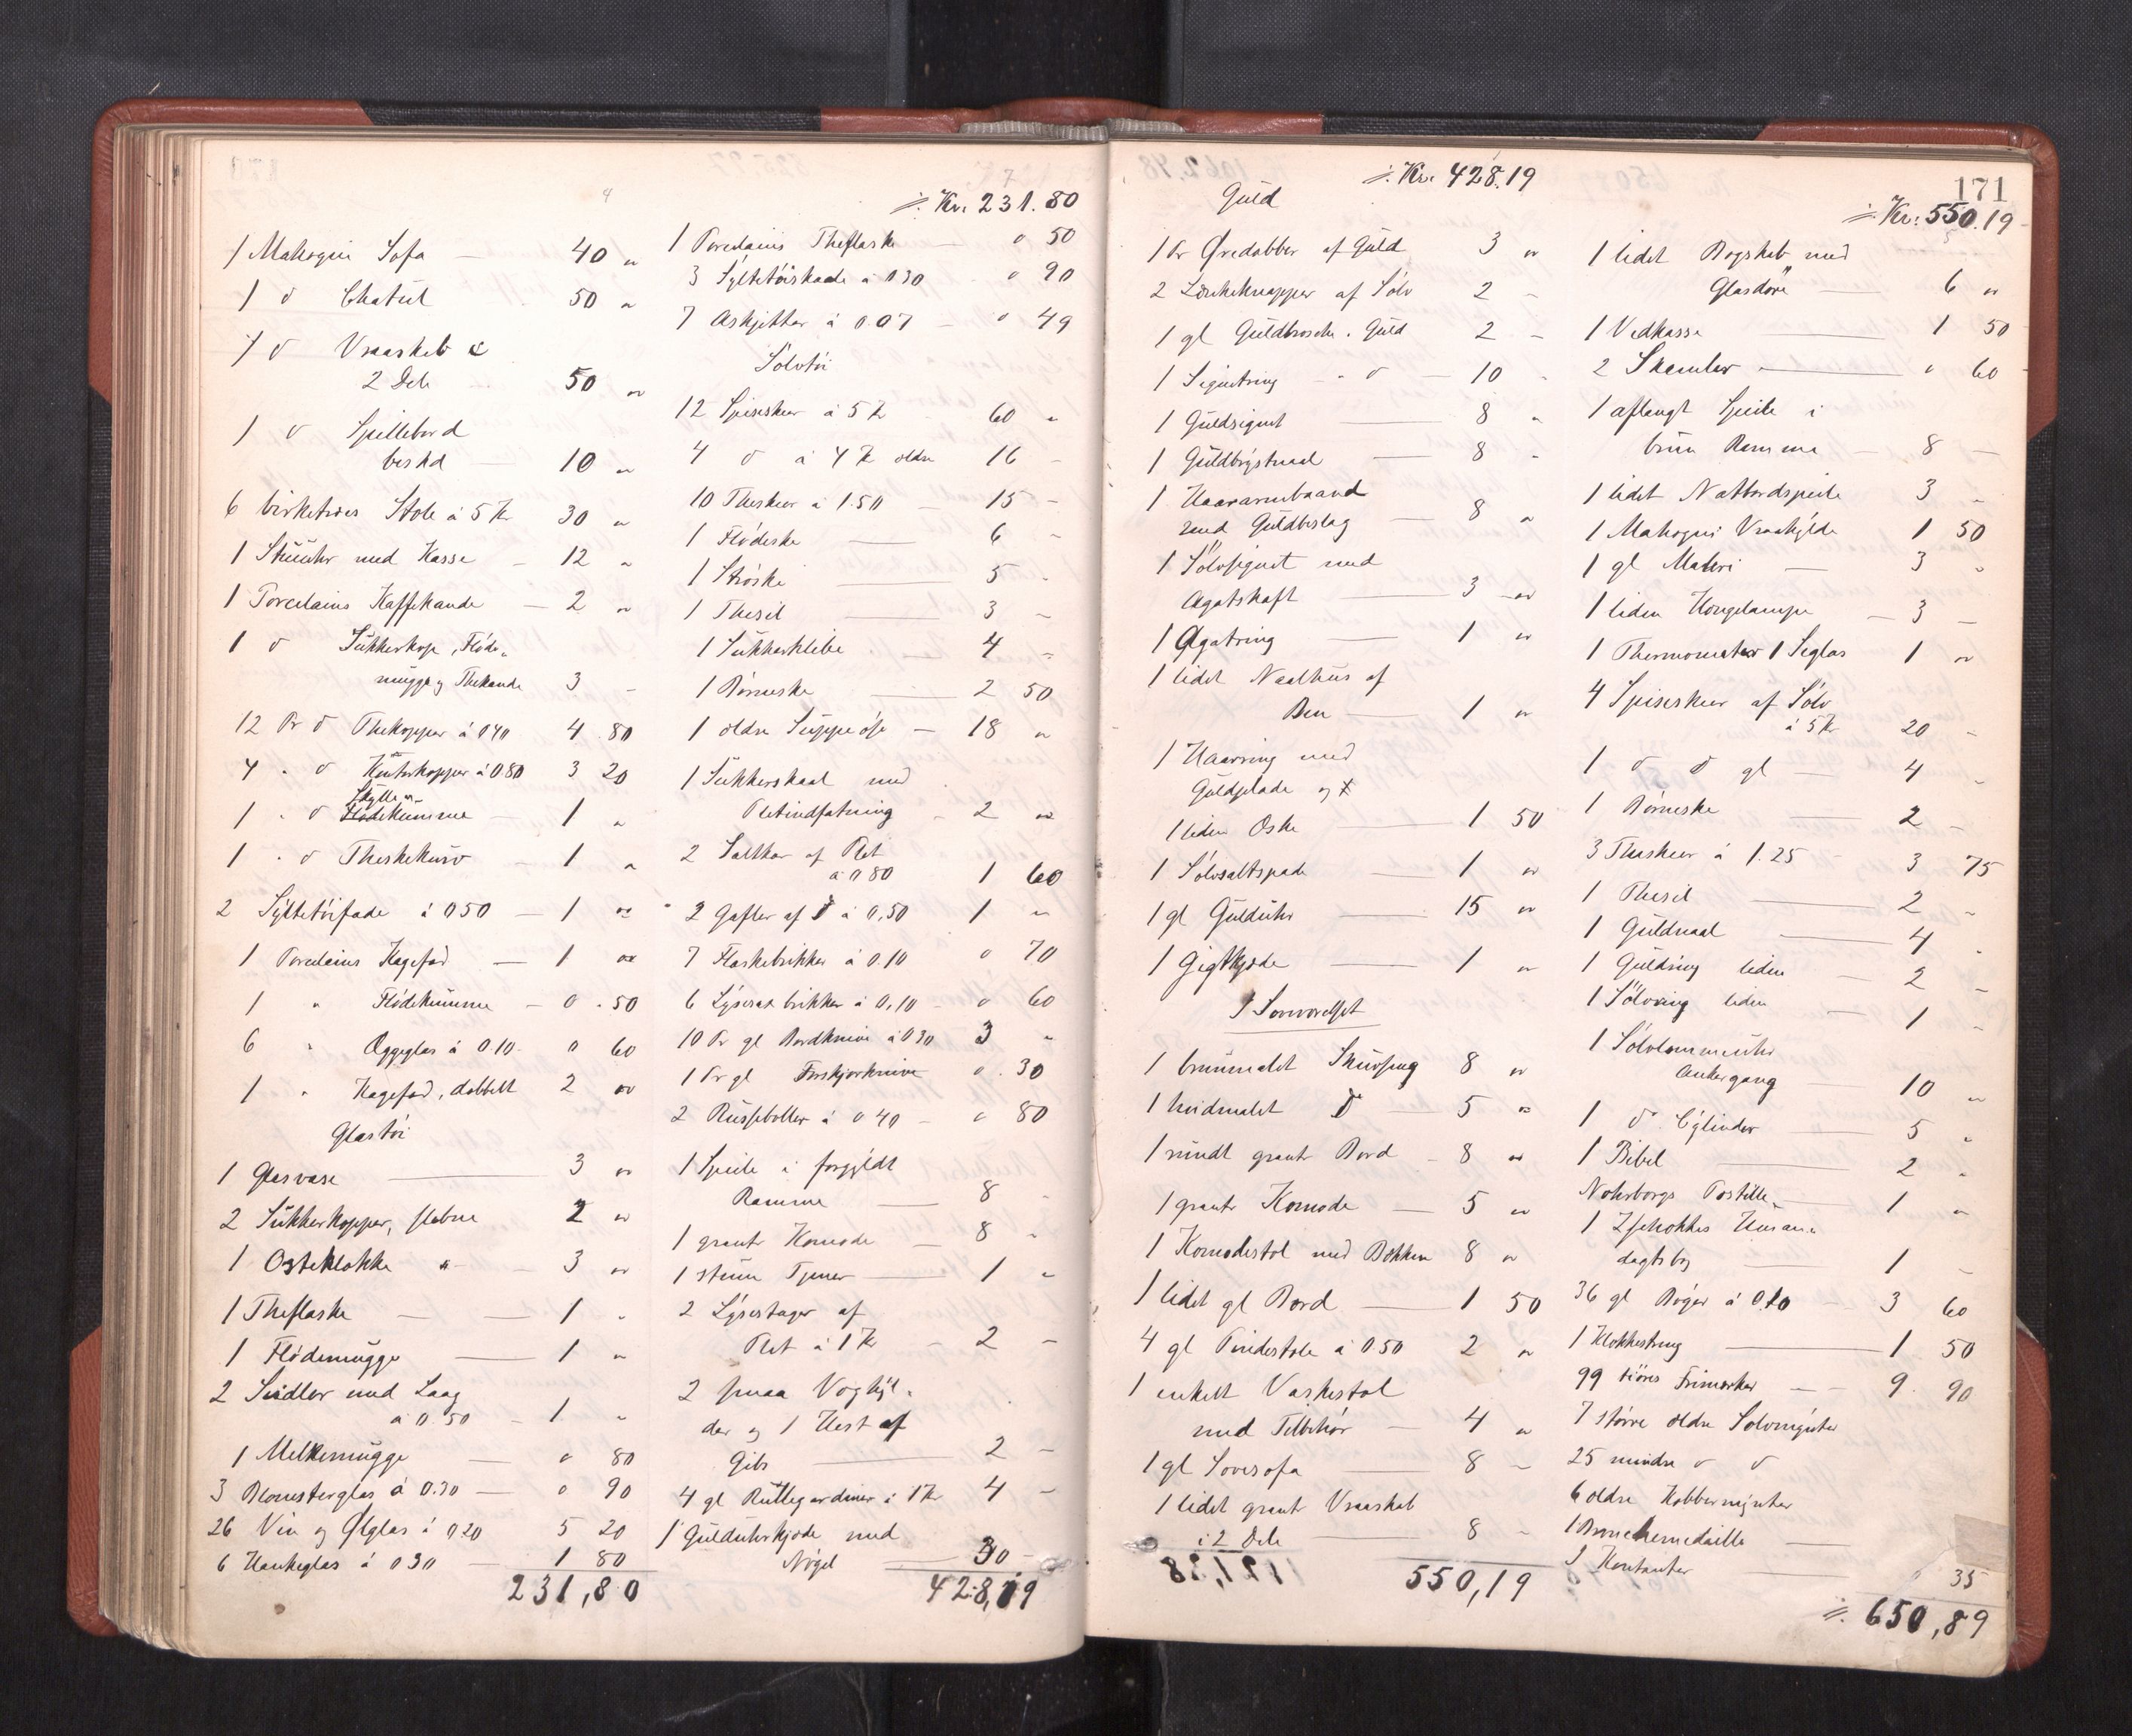 1 Mahogni Sofa — 40 "
1 d Chatul 50 "
1 d Vraaskab i
2 Dele 50 "
1 d Spillebord
10 "
6 birketræes Stole à 5 Kr 30 "
1 Stueuhr med Kasse — 12 "
1 Porcelains Kaffekande — 2 "
1 d Sukkerkop, Fløde-
mugge og Thekande 3 -
12 Pr d Thekopper à 0 40 4 80
4 " d Kruskopper à 0.80 3 20
1 " d Skylle-
kumme — 1 "
1 " d Theskekurv — 1 "
2 Syltetøifade à 0 50 — 1 "
1 Porcelains Kagefad — 1 "
1 " Flødekumme — 0 . 50
6 " Æggeglas à 0 10 0 60
1 " Kagefad, dobbelt 2 "
Glastøi
1 Glasvase — 3 "
2 Sukkerkopper, slebne 2 "
1 Osteklokke " — 3 "
1 Theflaske — 1 "
1 Flødemugge — 1 "
2 Seidler med Laag
à 0.50 — 1 "
1 Melkemugge — 0 80
3 Blomsterglas à 0.30 — 0 90
26 Vin og Ølglas à 0.20 5 20
6 Hankeglas à 0 30 — 1 80
231,80
÷ Kr. 231.80
1 Porcelains Theflaske — 0 50
3 Syltetøiskaale à 0 30 0 90
7 Asjetter à 0.07 — 0 49
Sølvtøi
12 Spiseskeer à 5 Kr 60 "
4 d à 4 Kr ældre 16 -
10 Theskeer à 1.50 — 15 -
1 Flødeske — 6 -
1 Strøske — 5 -
1 Thesil — 3 -
1 Sukkerklibe — 4 -
1 Børneske — 2 50
1 ældre Suppeøse — 18 "
1 Sukkerskaal med
Pletindfatning — 2 "
2 Saltkar af Plet
à 0 80 1 60
2 Gafler af d à 0,50 1 "
7 Flaskebrikker à 0.10 0 70
6 Lysesax brikker à 0,10 — 0 60
10 Pr gl Bordknive à 0 30 3 "
1 Pr gl Forskjærknive 0 . 30
2 Russeboller à 0 40 — 0 80
1 Speile i forgyldt
Ramme — 8 -
1 grant Komode — 8 -
1 stum Tjener — 1 "
2 Lysestager af
Plet à 1 Kr — 2 -
2 smaa Voghyl-
der og 1 Hest af
Gibs — 2 -
4 gl Rullegardiner à 1 Kr 4 -
1 Gulduhrkjæde med
Nøgel — 30 -
428,19
÷ Kr. 428.19
Guld
1 Pr Øredobber af Guld 3 "
2 Lænkeknapper af Sølv 2 -
1 gl Guldbrosche . Guld 2 -
1 Signetring - d — 10 -
1 Guldsignet — 8 "
1 Guldbrystnaal — 8 -
1 Haararmbaand
med Guldbeslag — 8 "
1 Sølvsignet med
Agatskaft — 3 "
1 Agatring — 1 "
1 lidet Naalhus af
Ben — 1 "
1 Haarring med
Guldplade og
1 liden Æske — 1 50
1 Sølvsaltspade — 1 "
1 gl Gulduhr — 15 "
1 Gigtkjæde — 1 "
I Soveværelset
1 brunmalet Skuvseng 8 "
1 hvidmalet d — 5 "
1 rundt grant Bord — 8 "
1 grant Komode — 5 "
1 Komodestol med Bækken 8 "
1 lidet gl Bord — 1 50
4 gl Pindestole à 0 50 2 "
1 enkelt Vaskestol
med Tilbehør — 4 "
1 gl Sovesofa — 8 -
1 lidet grant Vraaskab
i 2 Dele — 8 -
550,19
171
÷ Kr. 550.19
1 lidet Bogskab med
Glasdøre — 6 "
1 Vedkasse — 1 50
2 Skamler — 0 60
1 aflangt Speile i
brun Ramme — 8 —
1 lidet Natbordspeile 3 -
1 Mahogni Vraahylde 1 50
1 gl Maleri — 3 -
1 liden Hængelampe — 3 -
1 Thermometer 1 Seglas 1 "
4 Spiseskeer af Sølv
à 5 Kr 20 -
1 d d gl — 4 -
1 Børneske — 2 -
3 Theskeer à 1.25 — 3 75
1 Thesil — 2 -
1 Guldnaal — 4 -
1 Guldring liden — 2 -
1 Sølvring liden — 1 -
1 Sølvlommeuhr
Ankergang — 10 "
1 d Cylinder — 5 "
1 Bibel — 2 "
Nohrborgs Postille — 1 "
1 Zschokkes Husan-
dagtsbog — 1 -
36 gl Bøger à 0.10 — 3 60
1 Klokkestreng — 1 50
99 tiøres Frimærker — 9 . 90
7 større ældre Sølvmynter
25 mindre d d
6 ældre Kobbermynter
1 Broncemedaille —
I Kontanter — 35
÷ 650,89